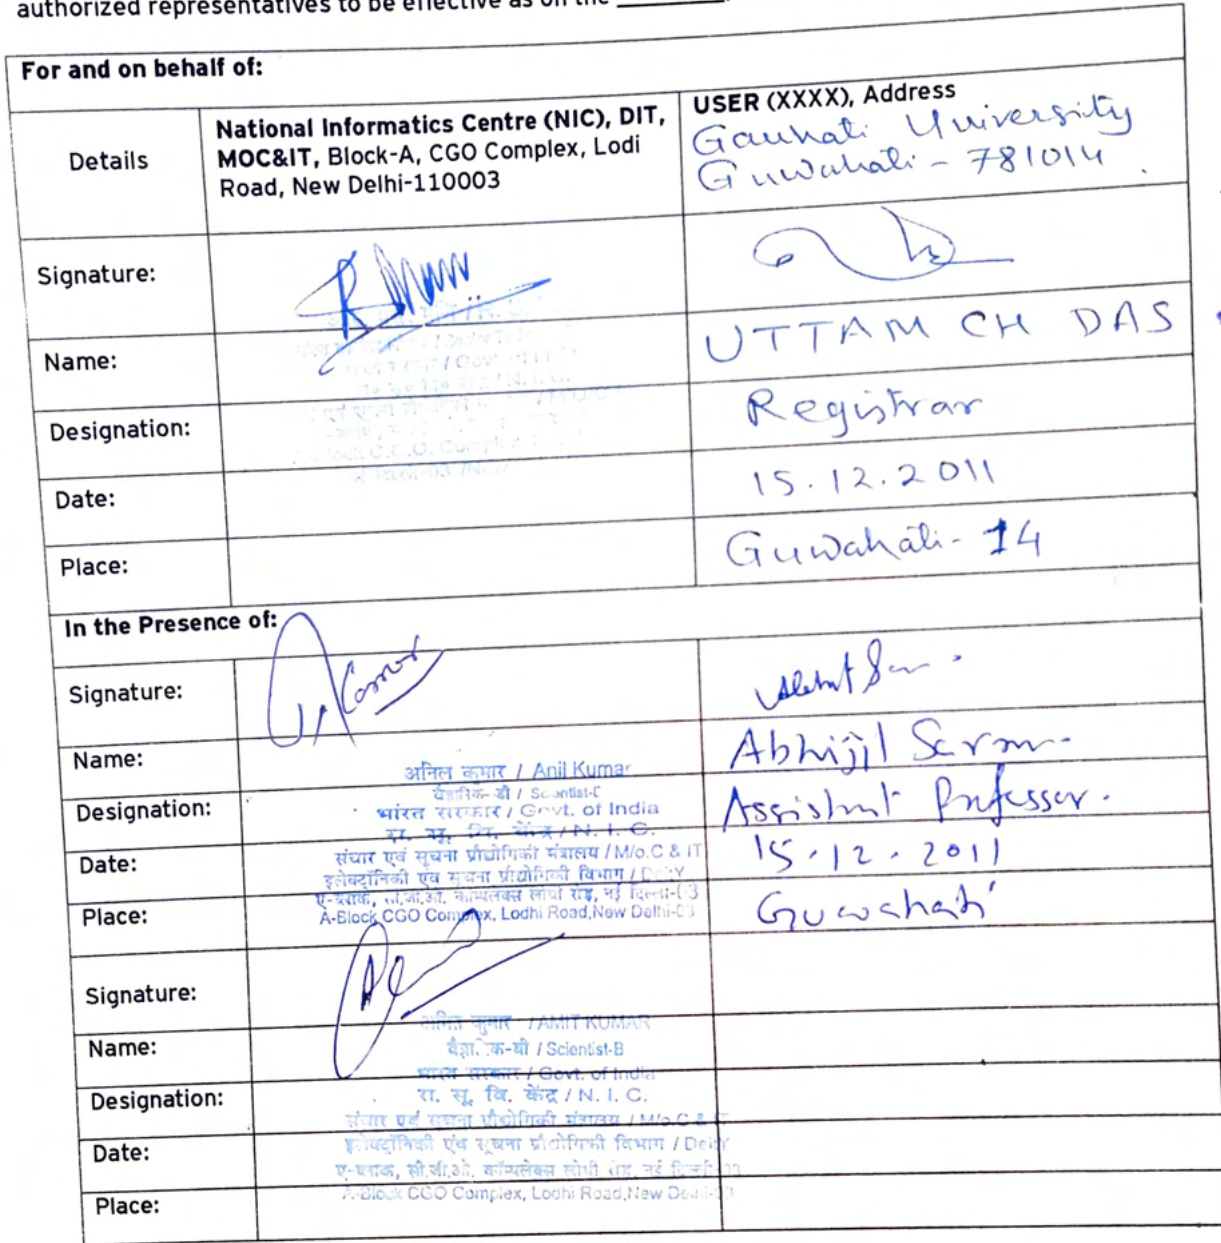 authorized representatives to be effective as on the ________.
For and on behalf of:
Details
National Informatics Centre (NIC), DIT,
MOC&IT, Block-A, CGO Complex, Lodi
Road, New Delhi-110003
USER (XXXX), Address
Gauhati University
Guwahati - 781014
Signature:
Name:
UTTAM CH DAS
Designation:
Registrar
Date:
15.12.2011
Place:
Guwahati- 14
In the Presence of:
Signature:
Name:
अनिल कुमार / Anil Kumar
Abhijit Sarma
Designation:
भारत सरकार / Govt. of India
Assistant Professor.
Date:
रा. सू. वि. केंद्र / N. I. C.
संचार एवं सूचना प्रौद्योगिकी मंत्रालय / M/o.C & IT
15.12.2011
Place:
इलेक्ट्रॉनिकी एवं सूचना प्रौद्योगिकी विभाग / DeitY
A-Block CGO Complex, Lodhi Road,New Delhi-03
Guwahati
Signature:
Name:
अमित कुमार / AMIT KUMAR
वैज्ञानिक-बी / Scientist-B
Designation:
भारत सरकार / Govt. of India
रा. सू. वि. केंद्र / N. I. C.
Date:
संचार एवं सूचना प्रौद्योगिकी मंत्रालय / M/o.C & IT
इलेक्ट्रॉनिकी एवं सूचना प्रौद्योगिकी विभाग / DeitY
Place:
ए-ब्लाक, सी.जी.ओ. कॉम्पलेक्स लोधी रोड, नई दिल्ली-03
A-Block CGO Complex, Lodhi Road,New Delhi-03